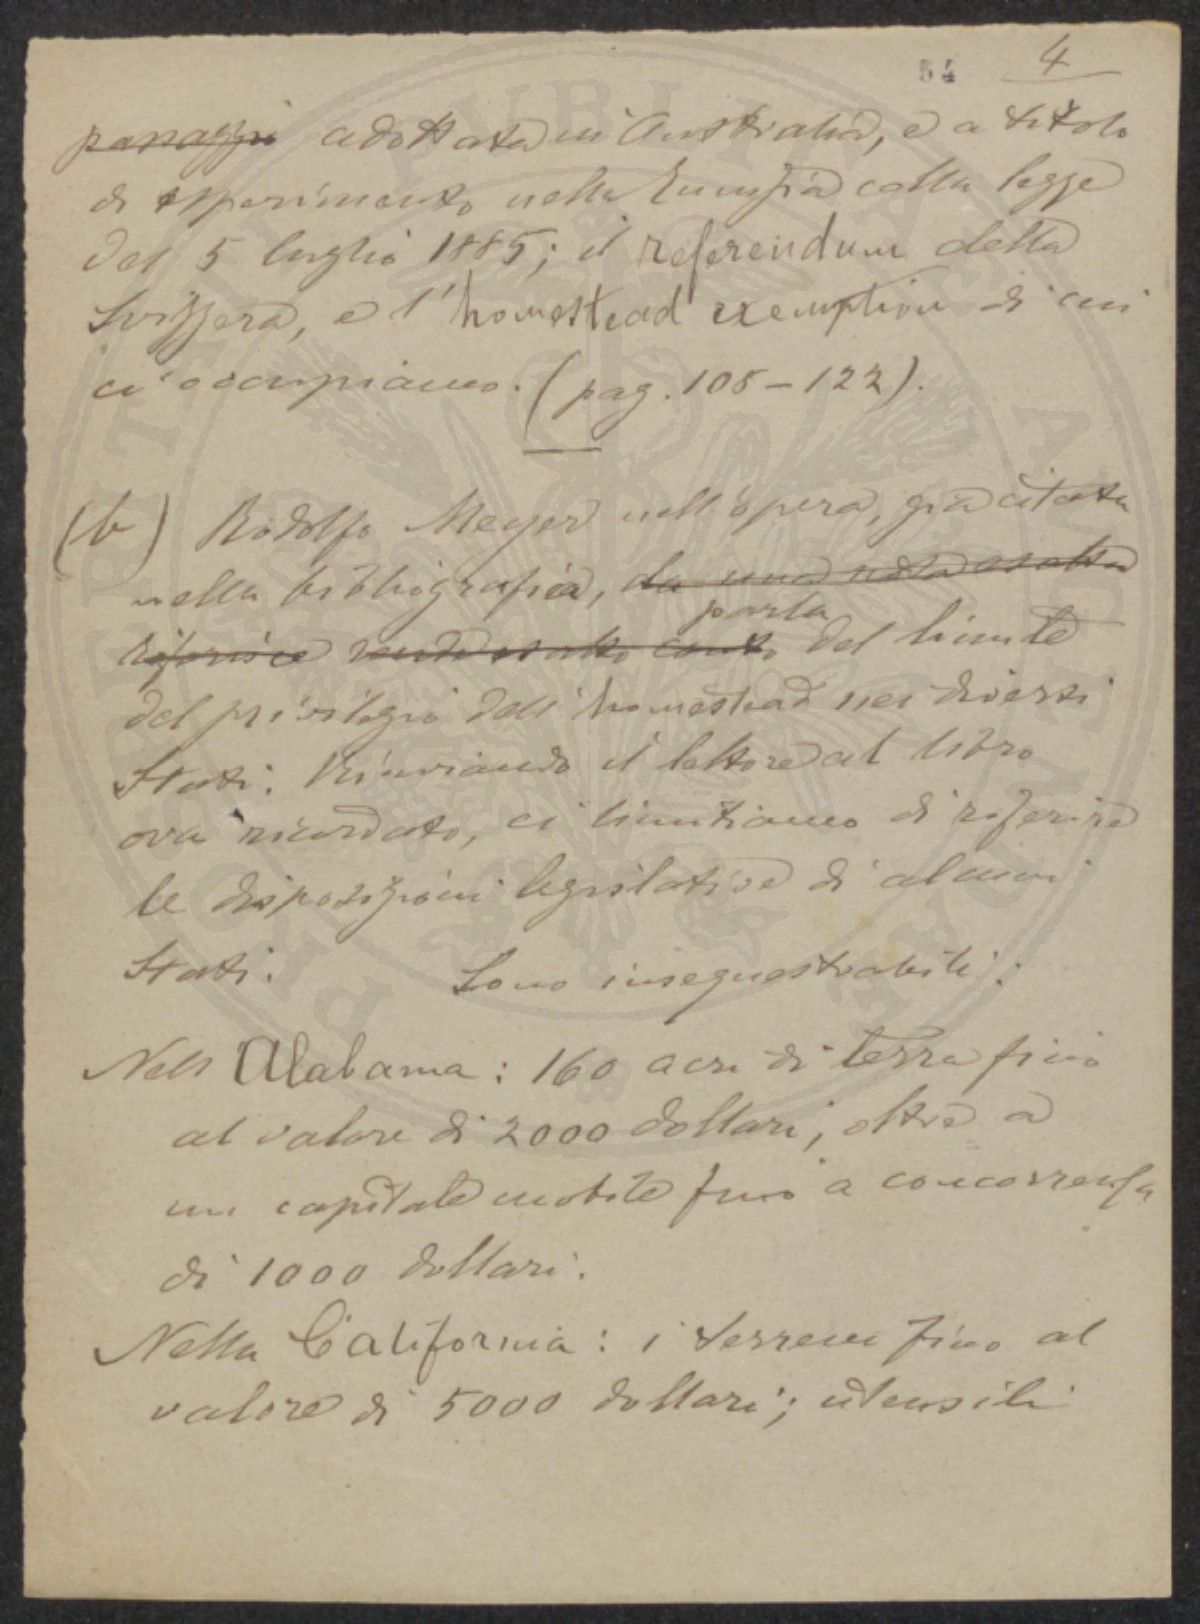 54 4
passaggi adottata in Australia, e a titolo
di esperimento nella Tunisia colla legge
del 5 luglio 1885; il referendum della
Svizzera, e l'homestead exemption di cui
ci occupiamo. (pag. 108-122).
(b) Rodolfo Meyer nell'opera, già citata
nella bibliografia, da una nota esatta
parla
riferisce rende esatto conto del limite
del privilegio dell'homestead nei diversi
Stati. Rinviando il lettore al libro
ora ricordato, ci limitiamo di riferire
le disposizioni legislative di alcuni
Stati. Sono insequestrabili:
Nell'Alabama: 160 acri di terra fino
al valore di 2000 dollari; oltre a
un capitale mobile fino a concorrenza
di 1000 dollari.
Nella California: i terreni fino al
valore di 5000 dollari; utensili